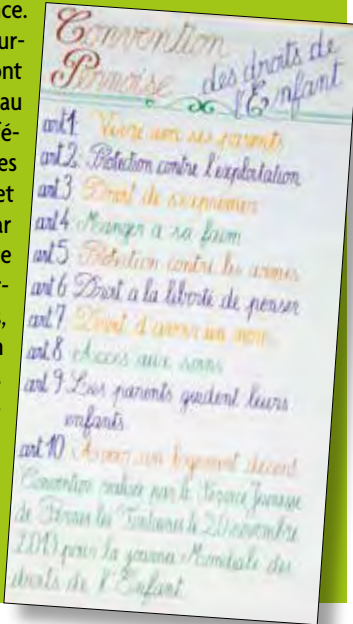 nce.
ur-
ont
au
fé-
es
et
ar
re
r-
s,
Convention
Pernoise des droits de
l'Enfant
art1 Vivre avec ses parents
art2 Protection contre l'exploitation
art3 Droit de s'exprimer
art4 Manger à sa faim
art5 Protection contre les armes
art6 Droit a la liberté de penser
art7 Droit d'avoir un nom
art8 Accès aux soins
art9 Les parents guident leurs
enfants.
art10 Avoir un logement décent
Convention réalisée par le Service Jeunesse
de Pernes les Fontaines le 20 novembre
2013 pour la journée Mondiale des
droits de l'Enfant